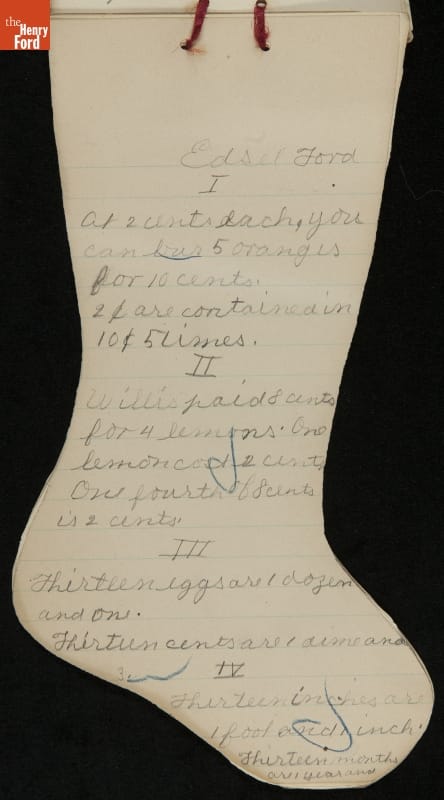 the
Henry
Ford
Edsel Ford
I
At 2 cents each, you
can bur 5 oranges
for 10 cents.
2¢ are contained in
10¢ 5 times.
II
Willis paid 8 cents
for 4 lemons. One
lemon cost 2 cents
One fourth of 8 cents
is 2 cents.
III
Thirteen eggs are 1 dozen
and one.
Thirteen cents are 1 dime and
3.
IV
Thirteen inches are
1 foot and 1 inch.
Thirteen months
are 1 year and